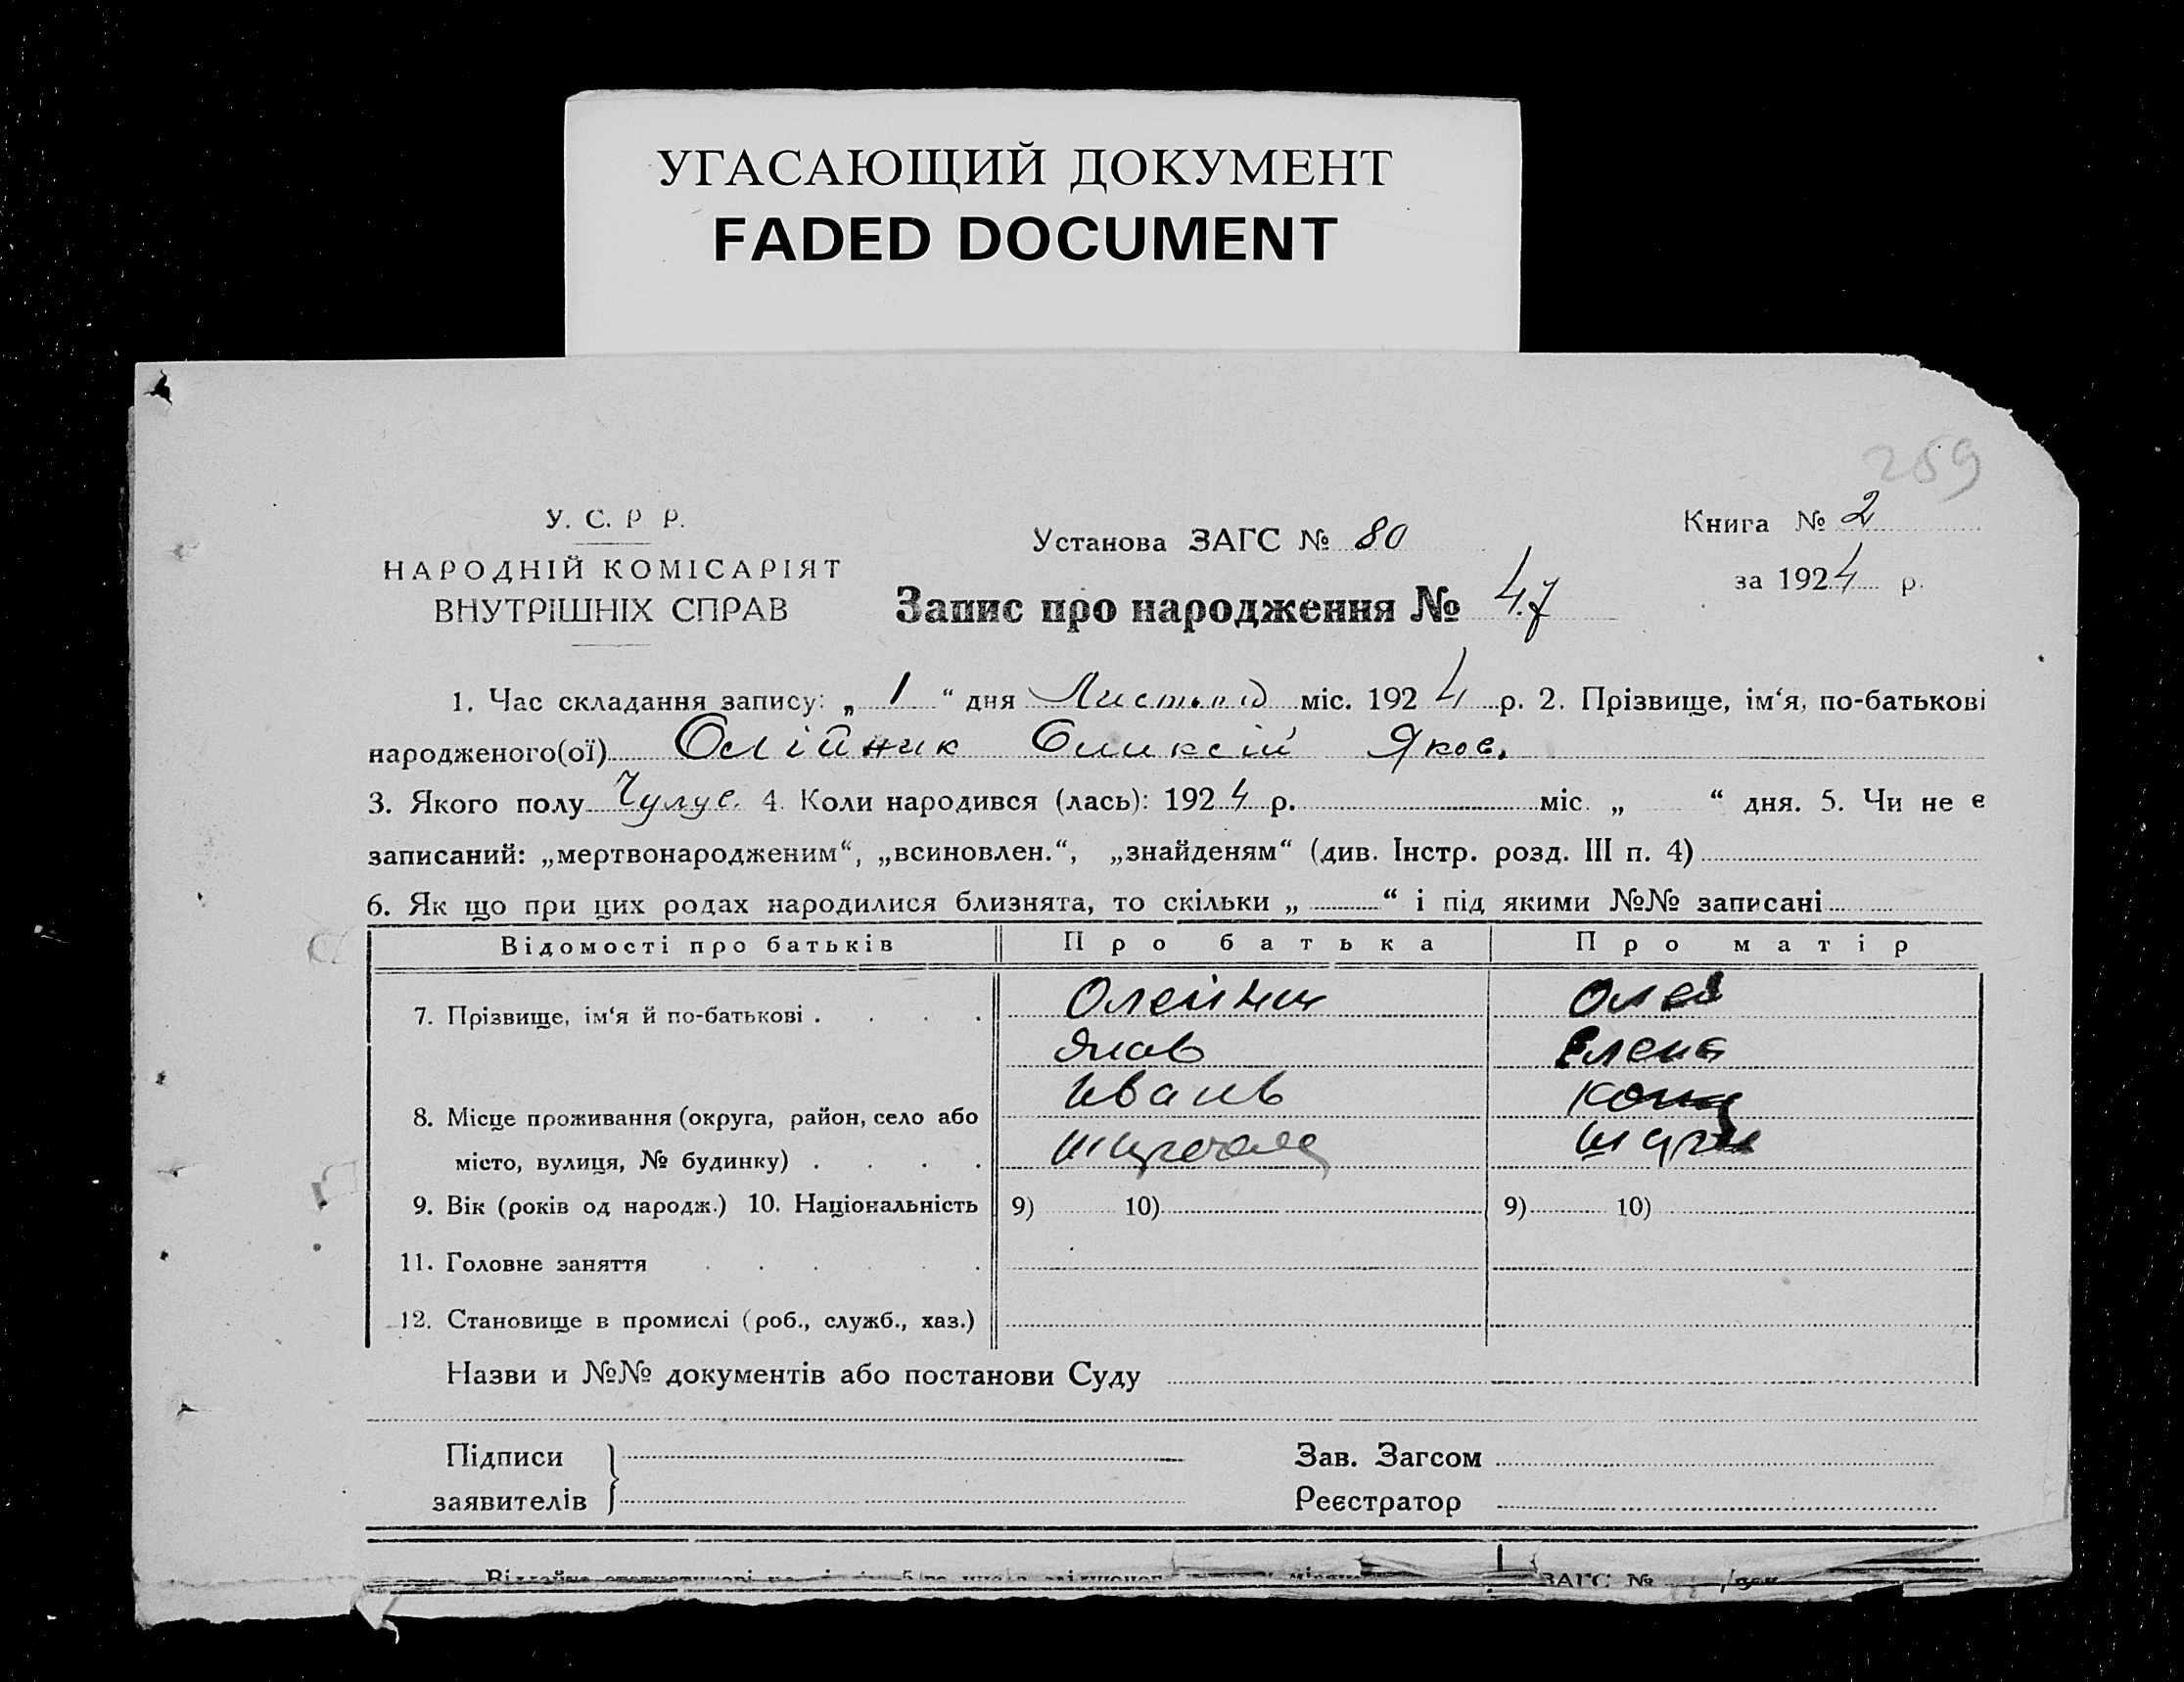 УГАСАЮЩИЙ ДОКУМЕНТ
FADED DOCUMENT
259
У. С. Р Р.
НАРОДНІЙ КОМІСАРІЯТ
ВНУТРІШНІХ СПРАВ
Установа ЗАГС № 80
Запис про народження № 47
Книга № 2
за 1924 р.
1. Час складання запису: „ 1 “ дня міс. 1924 р. 2. Прізвище, ім‘я, по-батькові
народженого(ої) Олійник Яков.
3. Якого полу 4. Коли народився (лась): 1924 р. міс. „ “ дня. 5. Чи не є
записаний: „мертвонародженим“, „всиновлен.“, „знайденям“ (див. Інстр. розд. III п. 4)
6. Як що при цих родах народилися близнята, то скільки „ “ і під якими №№ записані
Відомості про батьків Про батька Про матір
7. Прізвище, ім‘я й по-батькові . . . . Олейник Олей
Яков Елена
8. Місце проживання (округа, район, село або Ивань
місто, вулиця, № будинку) . . . .
9. Вік (років од народж.) 10. Національність 9) 10) 9) 10)
11. Головне заняття . . . . . .
12. Становище в промислі (роб., служб., хаз.)
Назви и №№ документів або постанови Суду
Підписи Зав. Загсом
заявителів Реєстратор
ЗАГС №